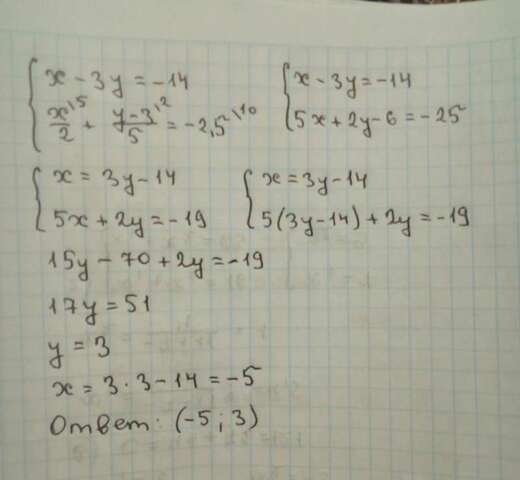 x - 3y = -14
x\5/2 + y-3\2/5 = -2,5\10
x - 3y = -14
5x + 2y - 6 = -25
x = 3y - 14
5x + 2y = -19
x = 3y - 14
5(3y - 14) + 2y = -19
15y - 70 + 2y = -19
17y = 51
y = 3
x = 3 · 3 - 14 = -5
Ответ: (-5; 3)